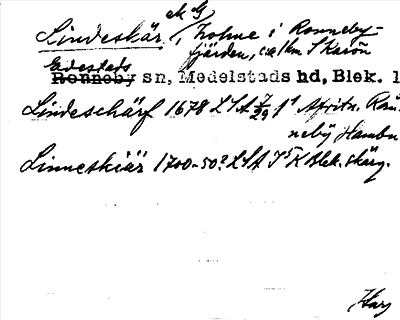 Lindeskär. M G, holme i Ronneby-
fjärden, c:a 1 km S Karön
Edestads
Ronneby sn, Medelstads hd, Blek. 1
Lindeschärf 1678 LSA 7/29 Afritn.
neby Hambn
Linneskiär 1700-50? LSA K Blek. skärg.
Harj